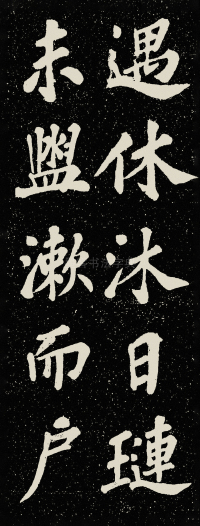 遇休沐日璉
未盥漱而户